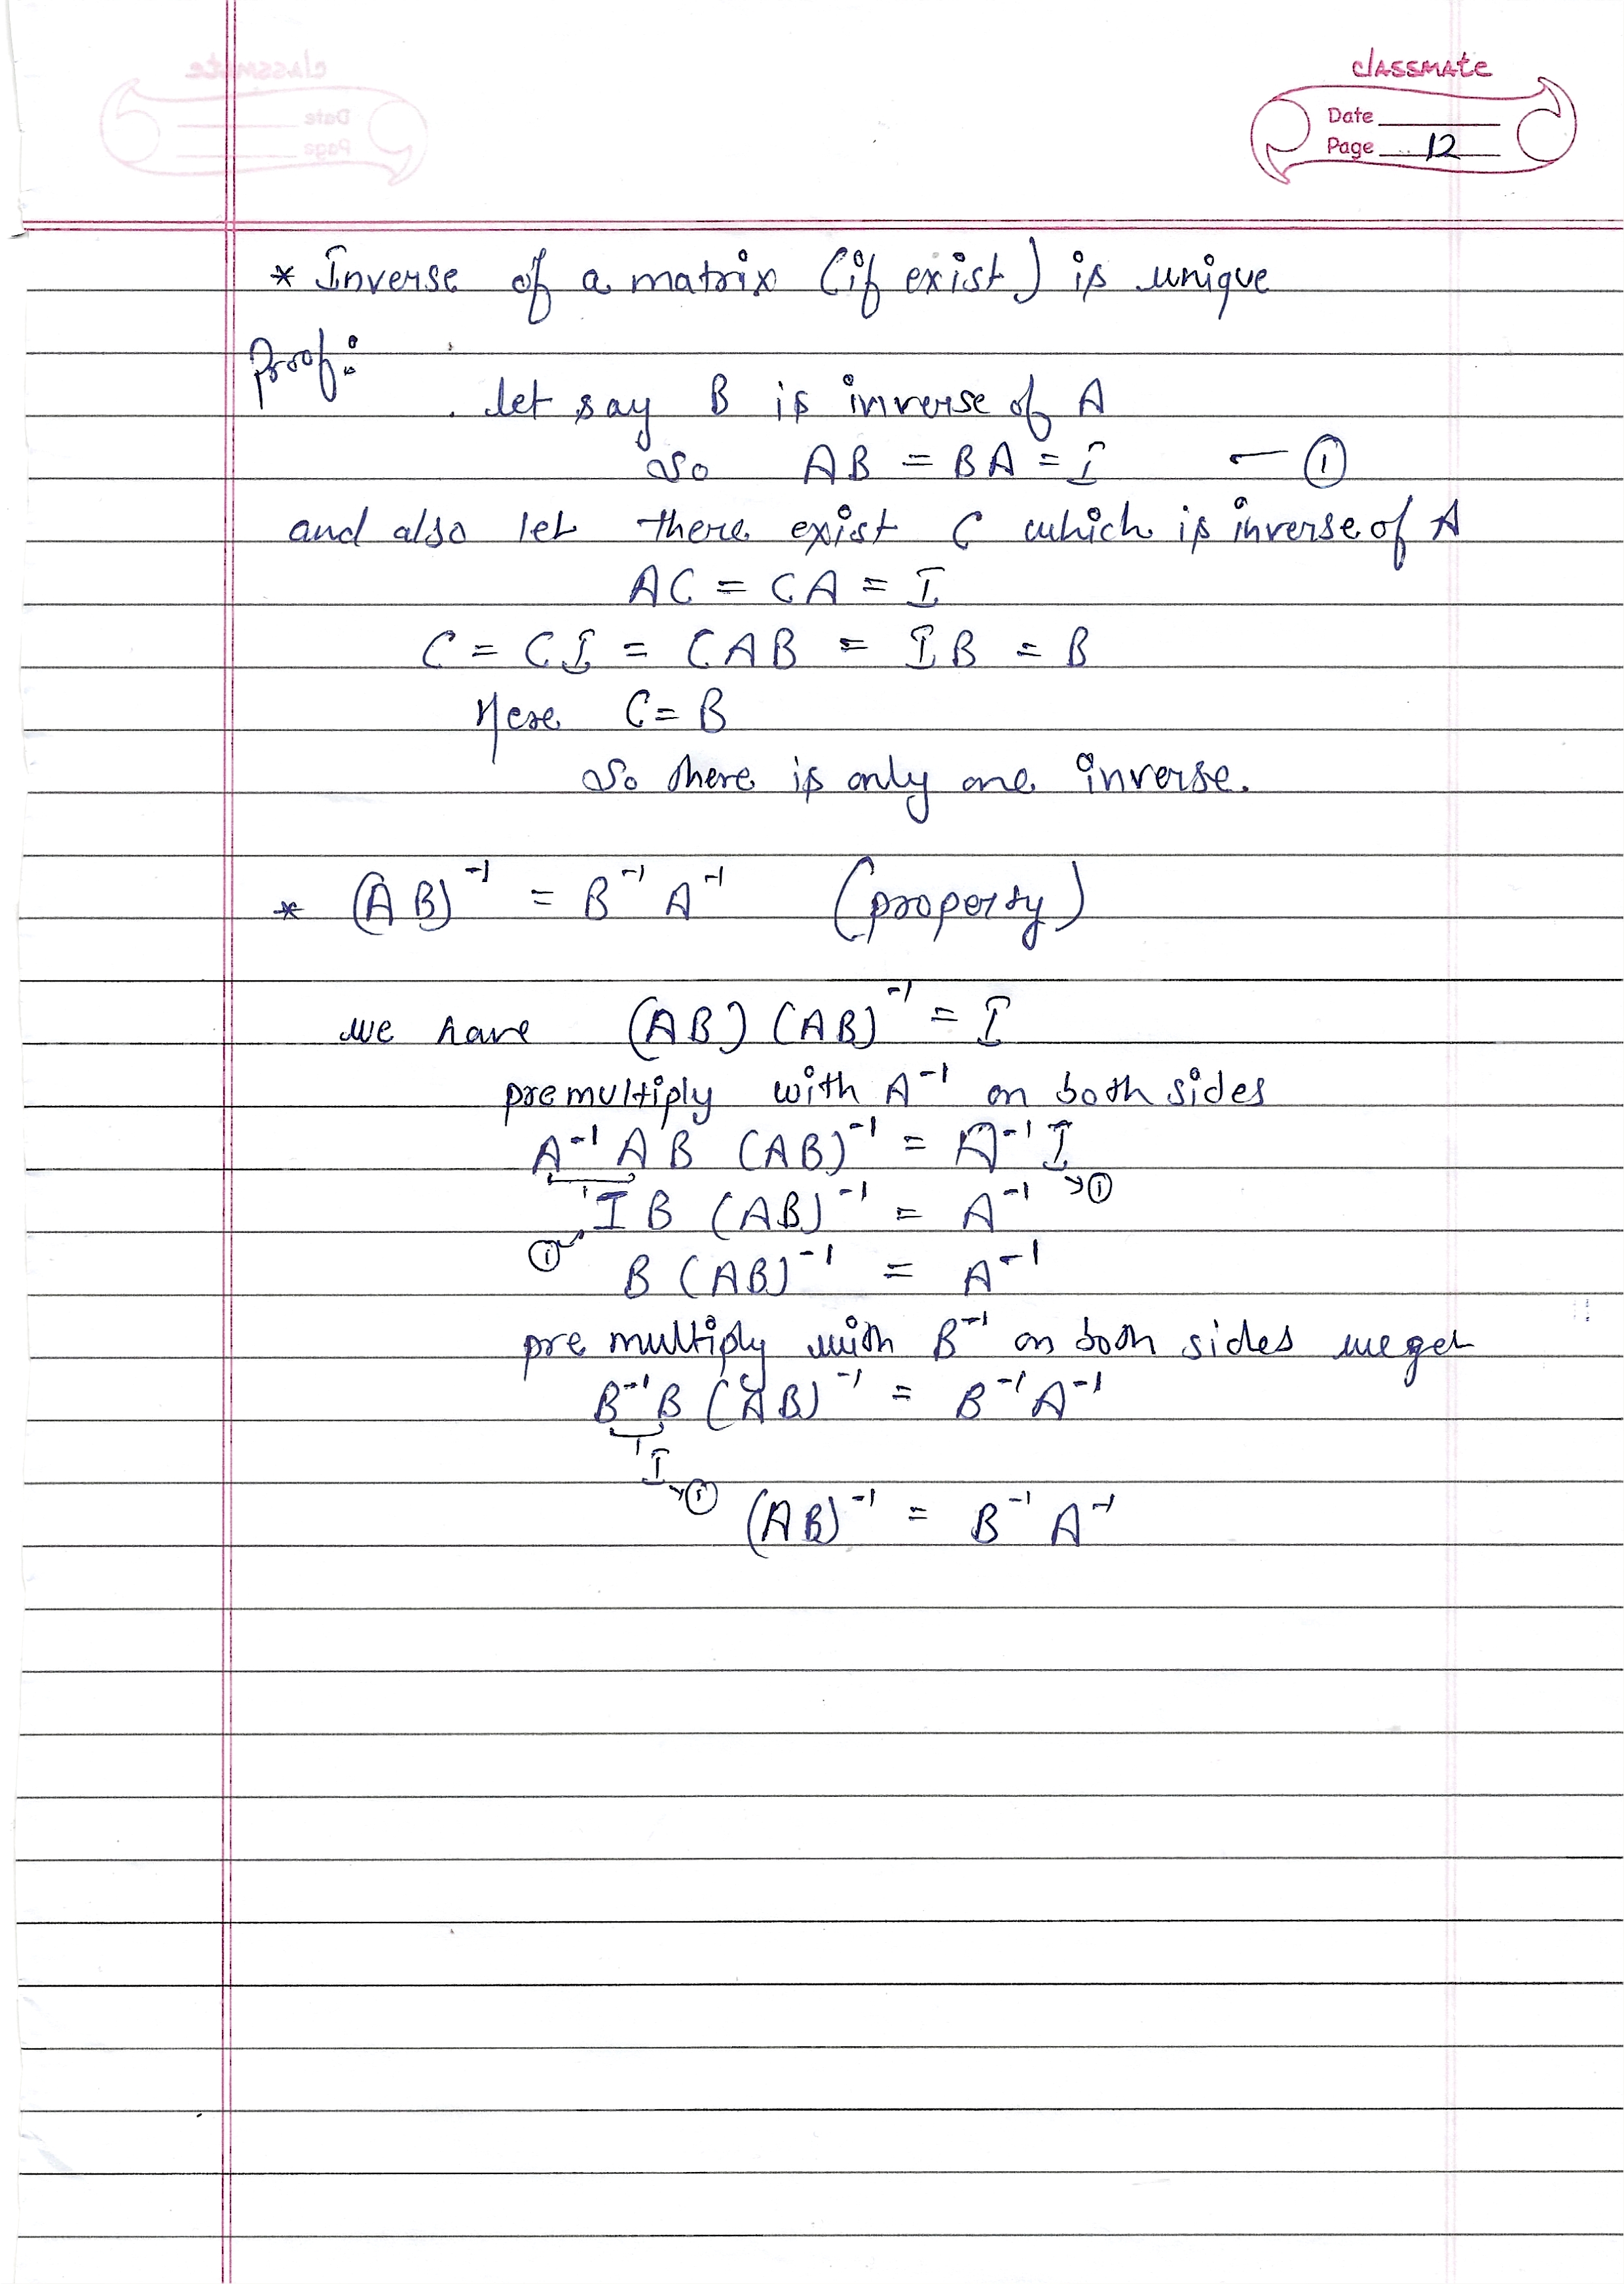 classmate
Date
Page 12
* Inverse of a matrix (if exist) is unique
Proof:
let say B is inverse of A
So AB = BA = I — ①
and also let there exist C which is inverse of A
AC = CA = I
C = CI = CAB = IB = B
Here C = B
So there is only one inverse.
* (AB)⁻¹ = B⁻¹ A⁻¹ (property)
we have (AB) (AB)⁻¹ = I
premultiply with A⁻¹ on both sides
A⁻¹ A B (AB)⁻¹ = A⁻¹ I
→ ①
I B (AB)⁻¹ = A⁻¹
①
B (AB)⁻¹ = A⁻¹
pre multiply with B⁻¹ on both sides we get
B⁻¹ B (AB)⁻¹ = B⁻¹ A⁻¹
I
→ ①
(AB)⁻¹ = B⁻¹ A⁻¹